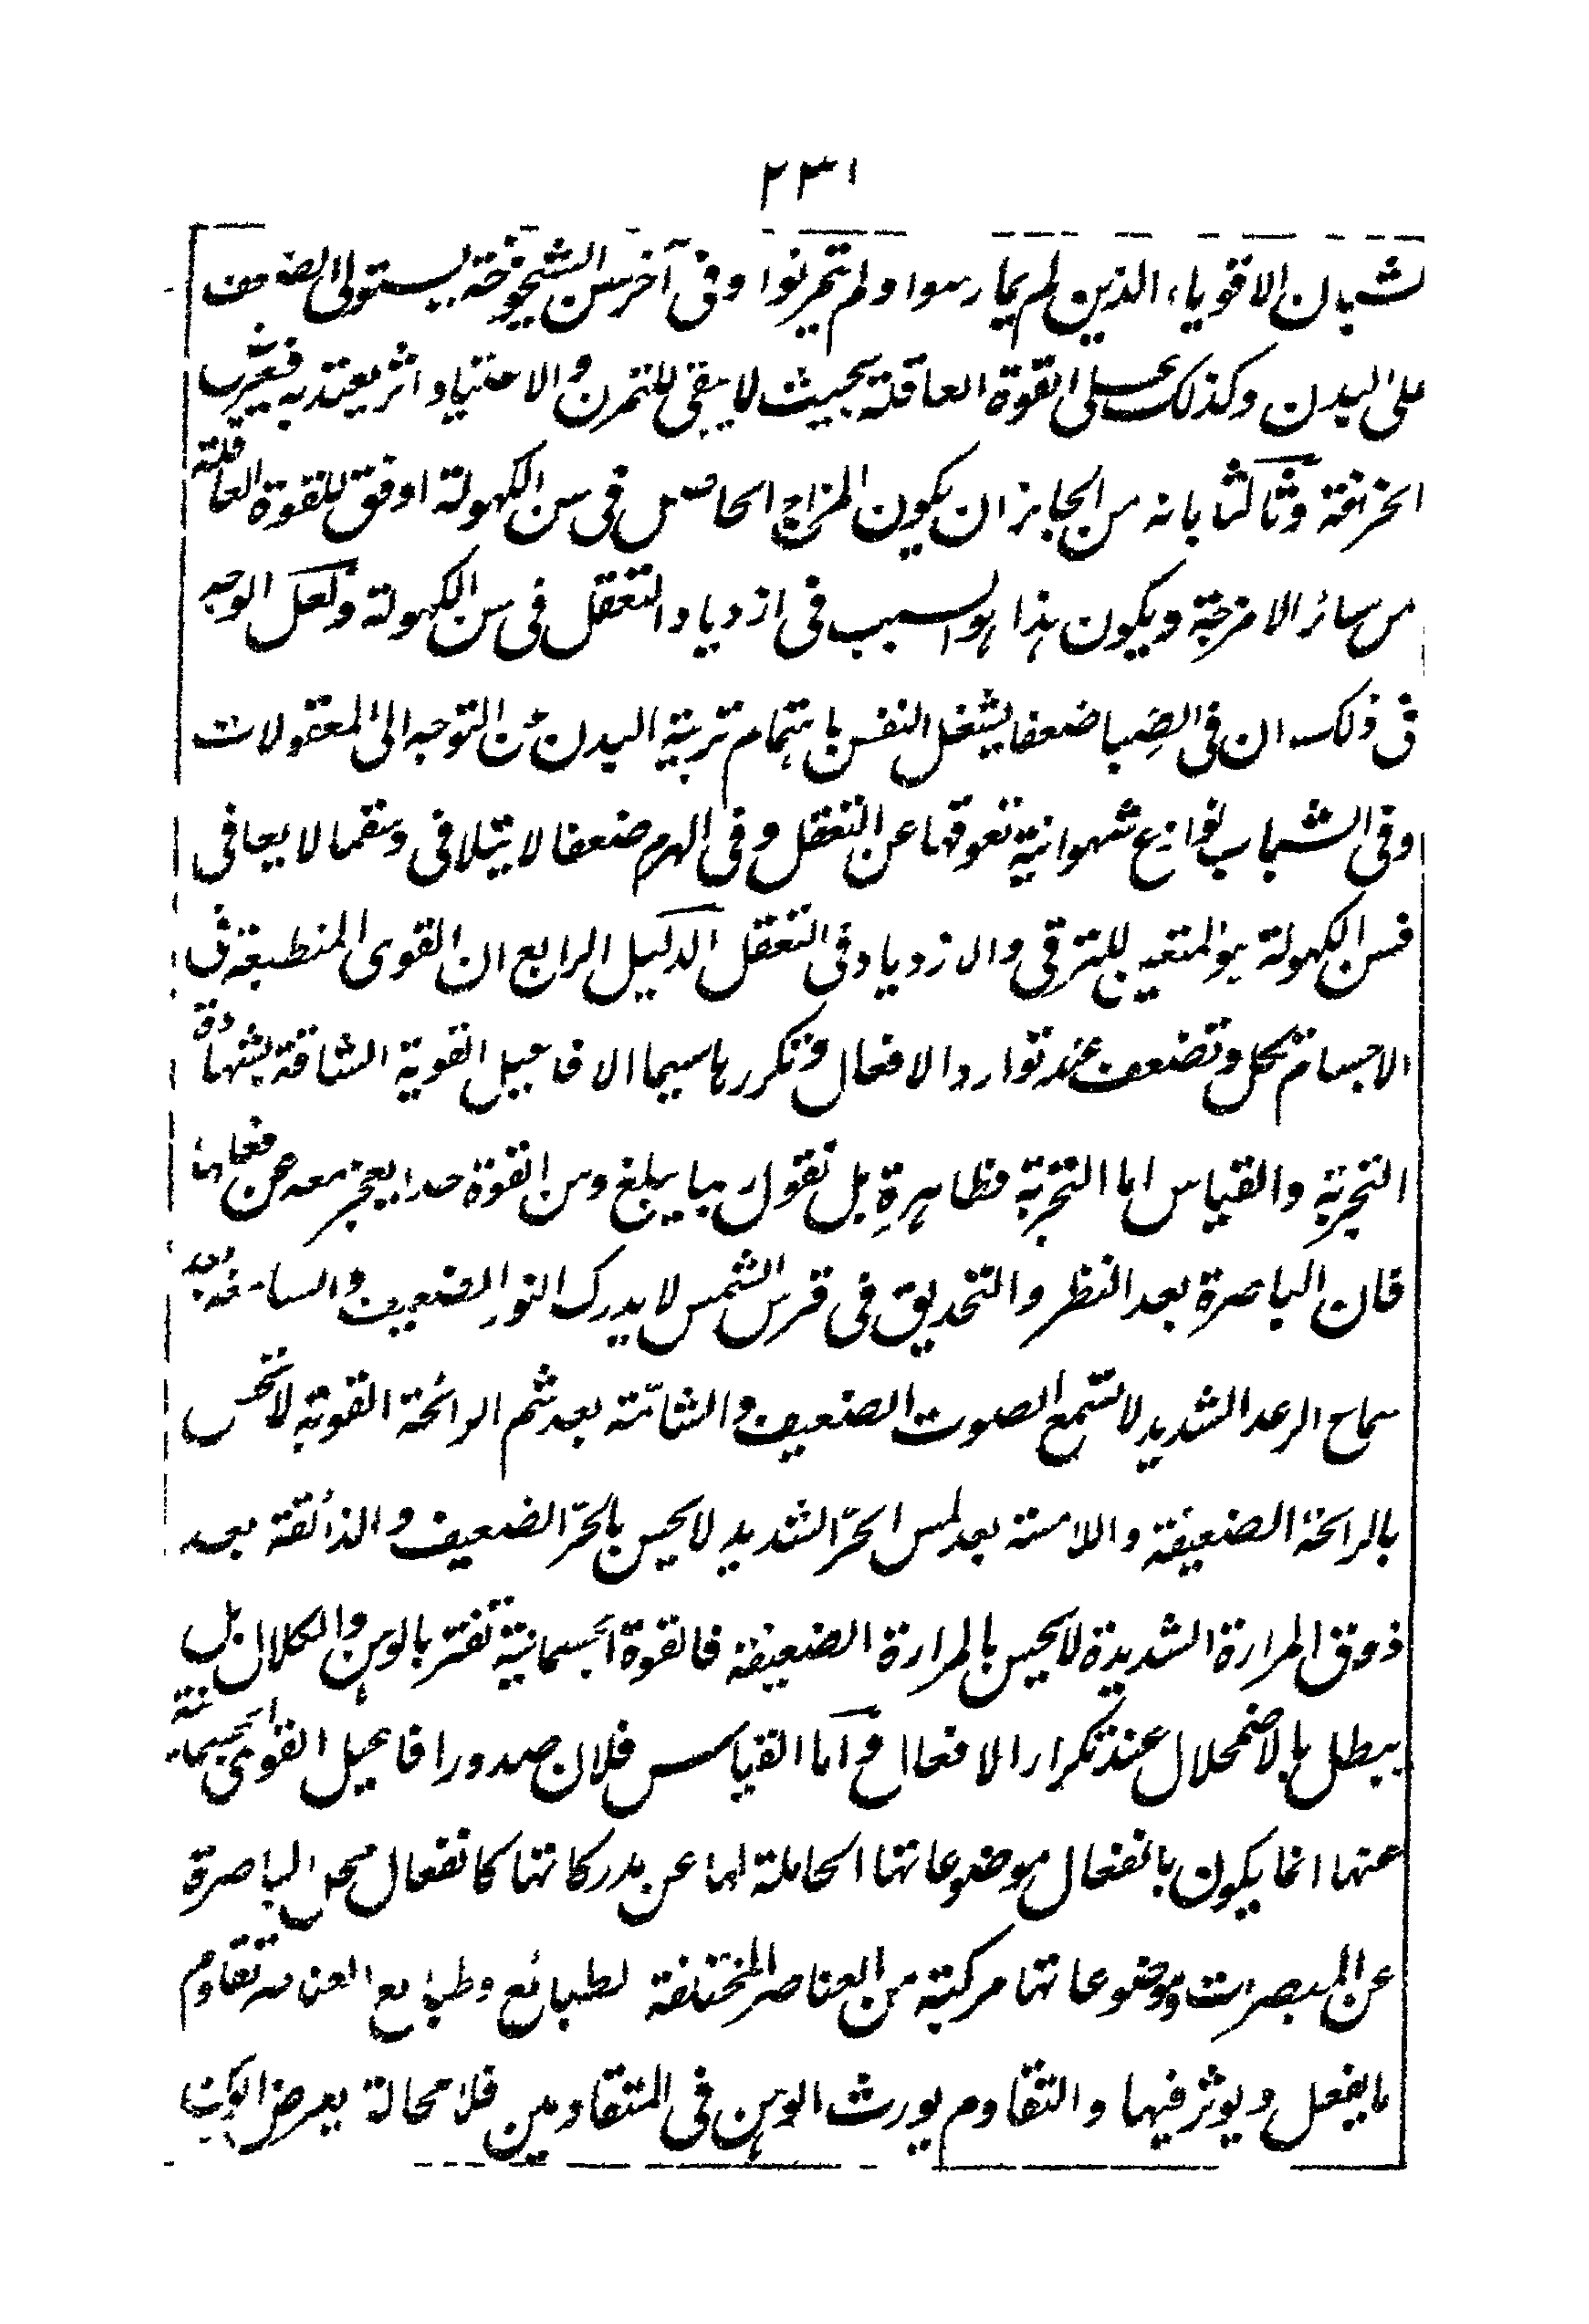 ٢٣١
لشبان الاقوياء الذين لم يمارسوا ولم يتمرنوا وفى آخر سن الشيخوخة يستولى الضعف
على البدن وكذلك على القوة العاقلة بحيث لا يبقى للتمرن والاعتياد اثر يعتد به فيعرض
الخرافة وثالثا بانه من الجايز ان يكون المزاج الحاصل فى سن الكهولة اوفق للقوة العاقلة
من سائر الامزجة ويكون هذا هو السبب فى ازدياد التعقل فى سن الكهولة ولعل الوجه
فى ذلك ان فى الصِبا ضعفا يشغل النفس باهتمام تربية البدن عن التوجه الى المعقولات
وفى الشباب نوازع شهوانية تعوقها عن التعقل وفى الهرم ضعفا لا يتلافى وسقما لا يعافى
فسن الكهولة هو المتعين للترقى والازدياد فى التعقل الدليل الرابع ان القوى المنطبعة فى
الاجسام تكل وتضعف عند توارد الافعال وتكررها سيما الافاعيل القوية الشاقة بشهادة
التجربة والقياس اما التجربة فظاهرة بل نقول ربما يبلغ وهن القوة حدا يعجز معه عن فعلها
فان الباصرة بعد النظر والتحديق فى قرص الشمس لا يدرك النور الضعيف والسامعة بعد
سماع الرعد الشديد لا تسمع الصوت الضعيف والشامّة بعد شم الرائحة القوية لا تحس
بالرائحة الضعيفة واللامسة بعد لمس الحرّ الشديد لا يحس بالحرّ الضعيف والذائقة بعد
ذوق المرارة الشديدة لا يحس بالمرارة الضعيفة فالقوة الجسمانية تفتر بالوهن والكلال بل
يبطل بالاضمحلال عند تكرار الافعال واما القياس فلان صدور افاعيل القوى الجسمانية
عنها انما يكون بانفعال موضوعاتها الحاملة لها عن مدركاتها كانفعال محل الباصرة
عن المبصرات وموضوعاتها مركبة من العناصر المختلفة لطبائع وطبايع العناصر تقاوم
ما يفعل ويوثر فيها والتقاوم يورث الوهن فى المتقاومين فلا محالة يعرض الوهن